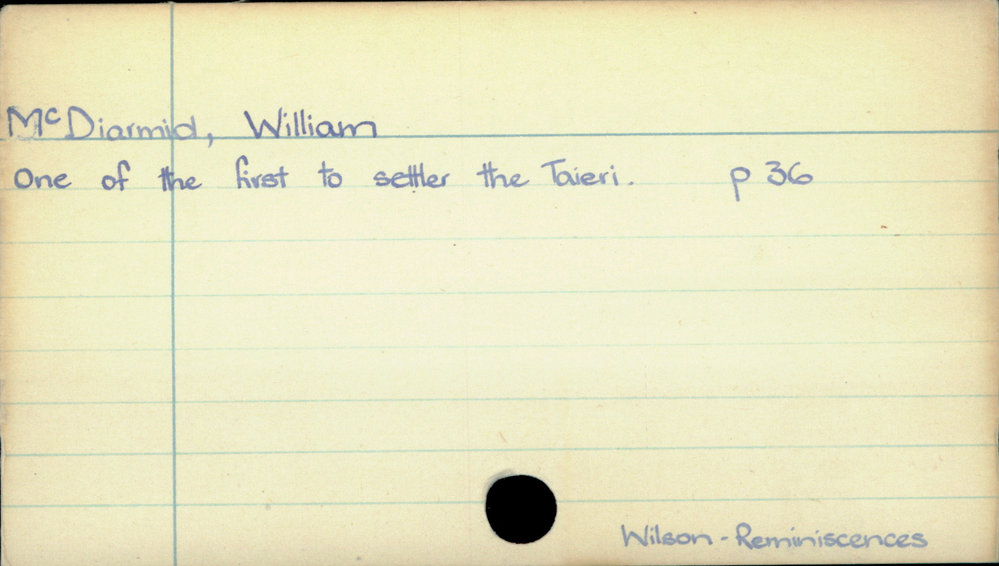 McDiarmid, William
One of the first to settler the Taieri. p 36
Wilson - Reminiscences